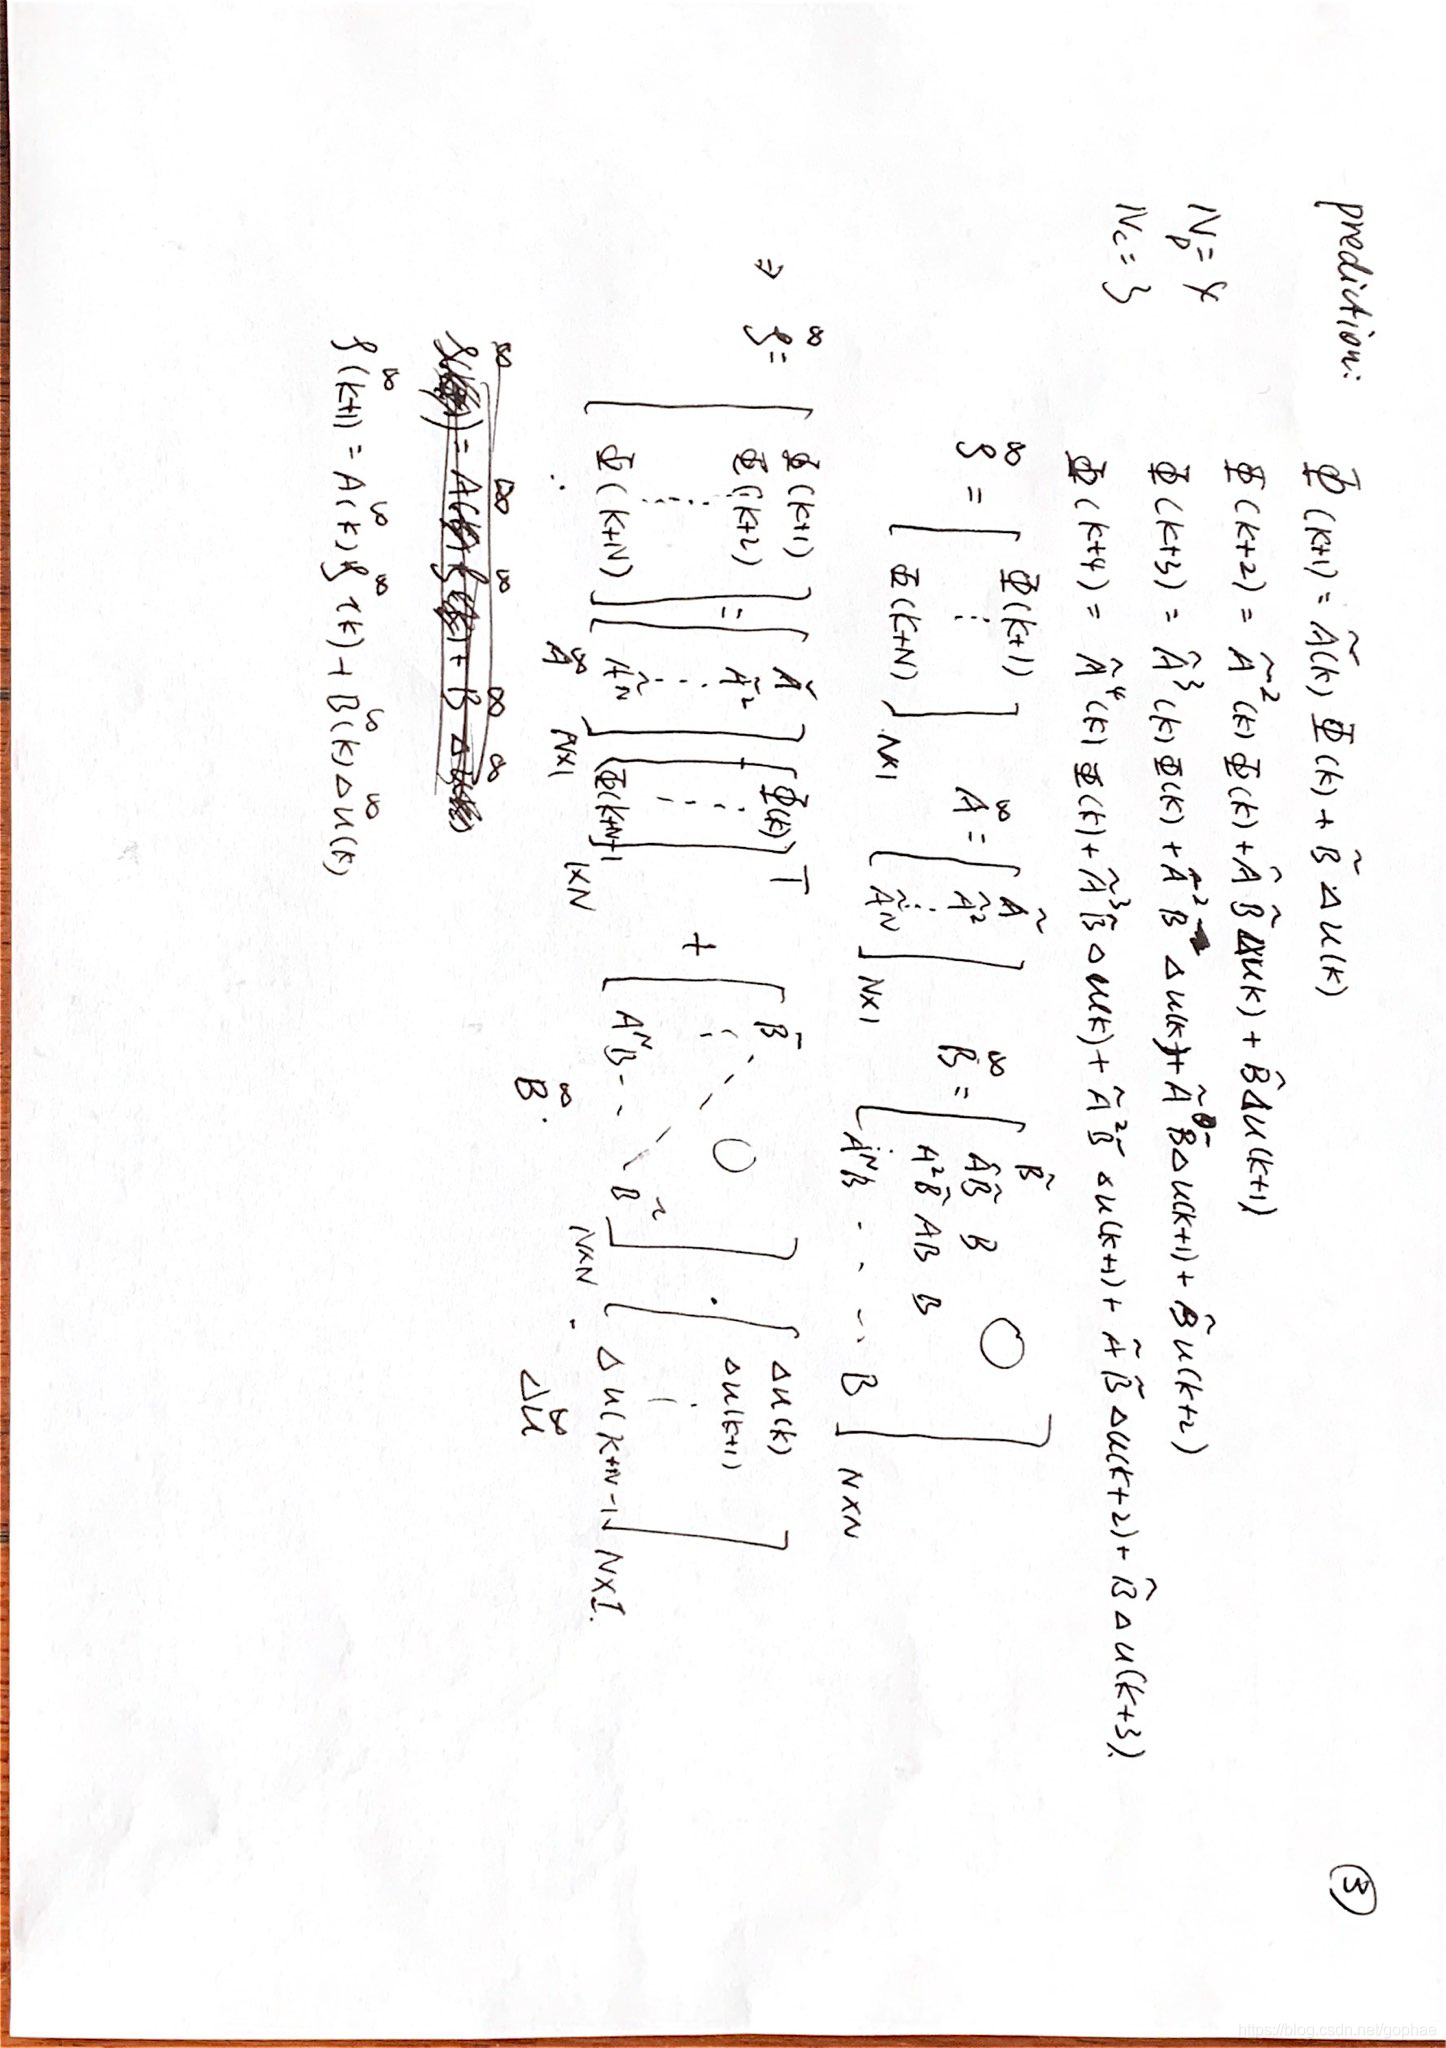 ③
prediction: Φ(k+1) = Ã(k) Φ(k) + B̃ Δu(k)
Np = 4 Φ(k+2) = Ã²(k) Φ(k) + Ã B̃ Δu(k) + B̃ Δu(k+1)
Nc = 3 Φ(k+3) = Ã³(k) Φ(k) + Ã² B̃ Δu(k) + Ã B̃ Δu(k+1) + B̃ u(k+2)
Φ(k+4) = Ã⁴(k) Φ(k) + Ã³ B̃ Δu(k) + Ã² B̃ Δu(k+1) + Ã B̃ Δu(k+2) + B̃ Δu(k+3).
ξ^∞ = [ Φ(k+1) ⋮ Φ(k+N) ] N×1 A^∞ = [ Ã Ã² ⋮ Ã^N ] N×1 B^∞ = [ B̃ ÃB̃ B A²B̃ AB B A^N B ⋯ B O ] N×N
⇒ ξ^∞ = [ Φ(k+1) Φ(k+2) ⋮ Φ(k+N) ] = [ Ã Ã² ⋮ Ã^N ] N×1 [ Φ(k) ⋮ Φ(k+N-1 ]^T 1×N + [ B̃ ⋱ O A^N B ⋯ B̃ ] N×N · [ Δu(k) Δu(k+1) ⋮ Δu(k+N-1) ] N×1.
A^∞ B^∞ Δu^∞
ξ^∞(k+1) = A^∞(k) ξ^∞(k) + B^∞(k) Δu^∞(k)
https://blog.csdn.net/gophae